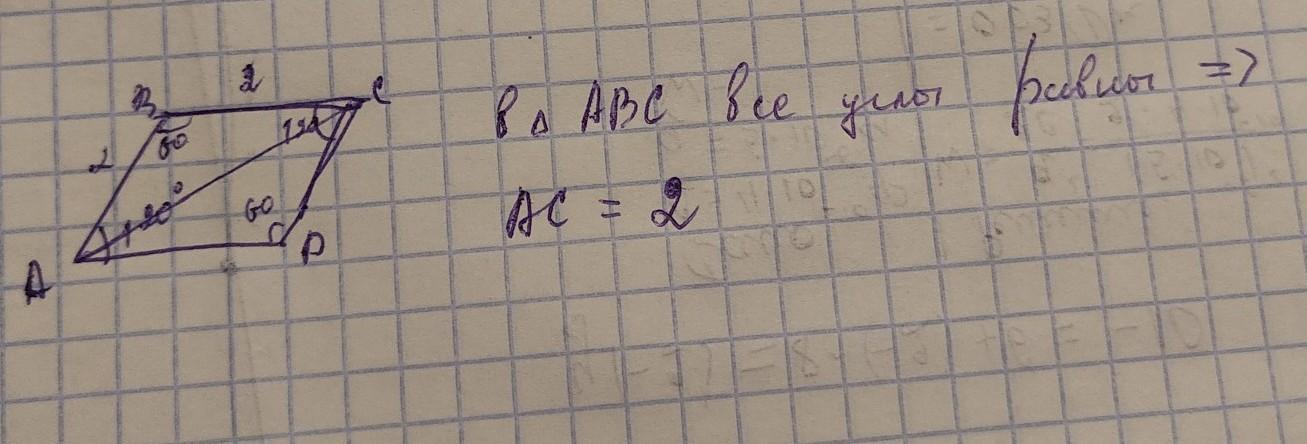 2
B
C
60
120
2
120°
60
A
D
В △ ABC все углы равны =>
AC = 2